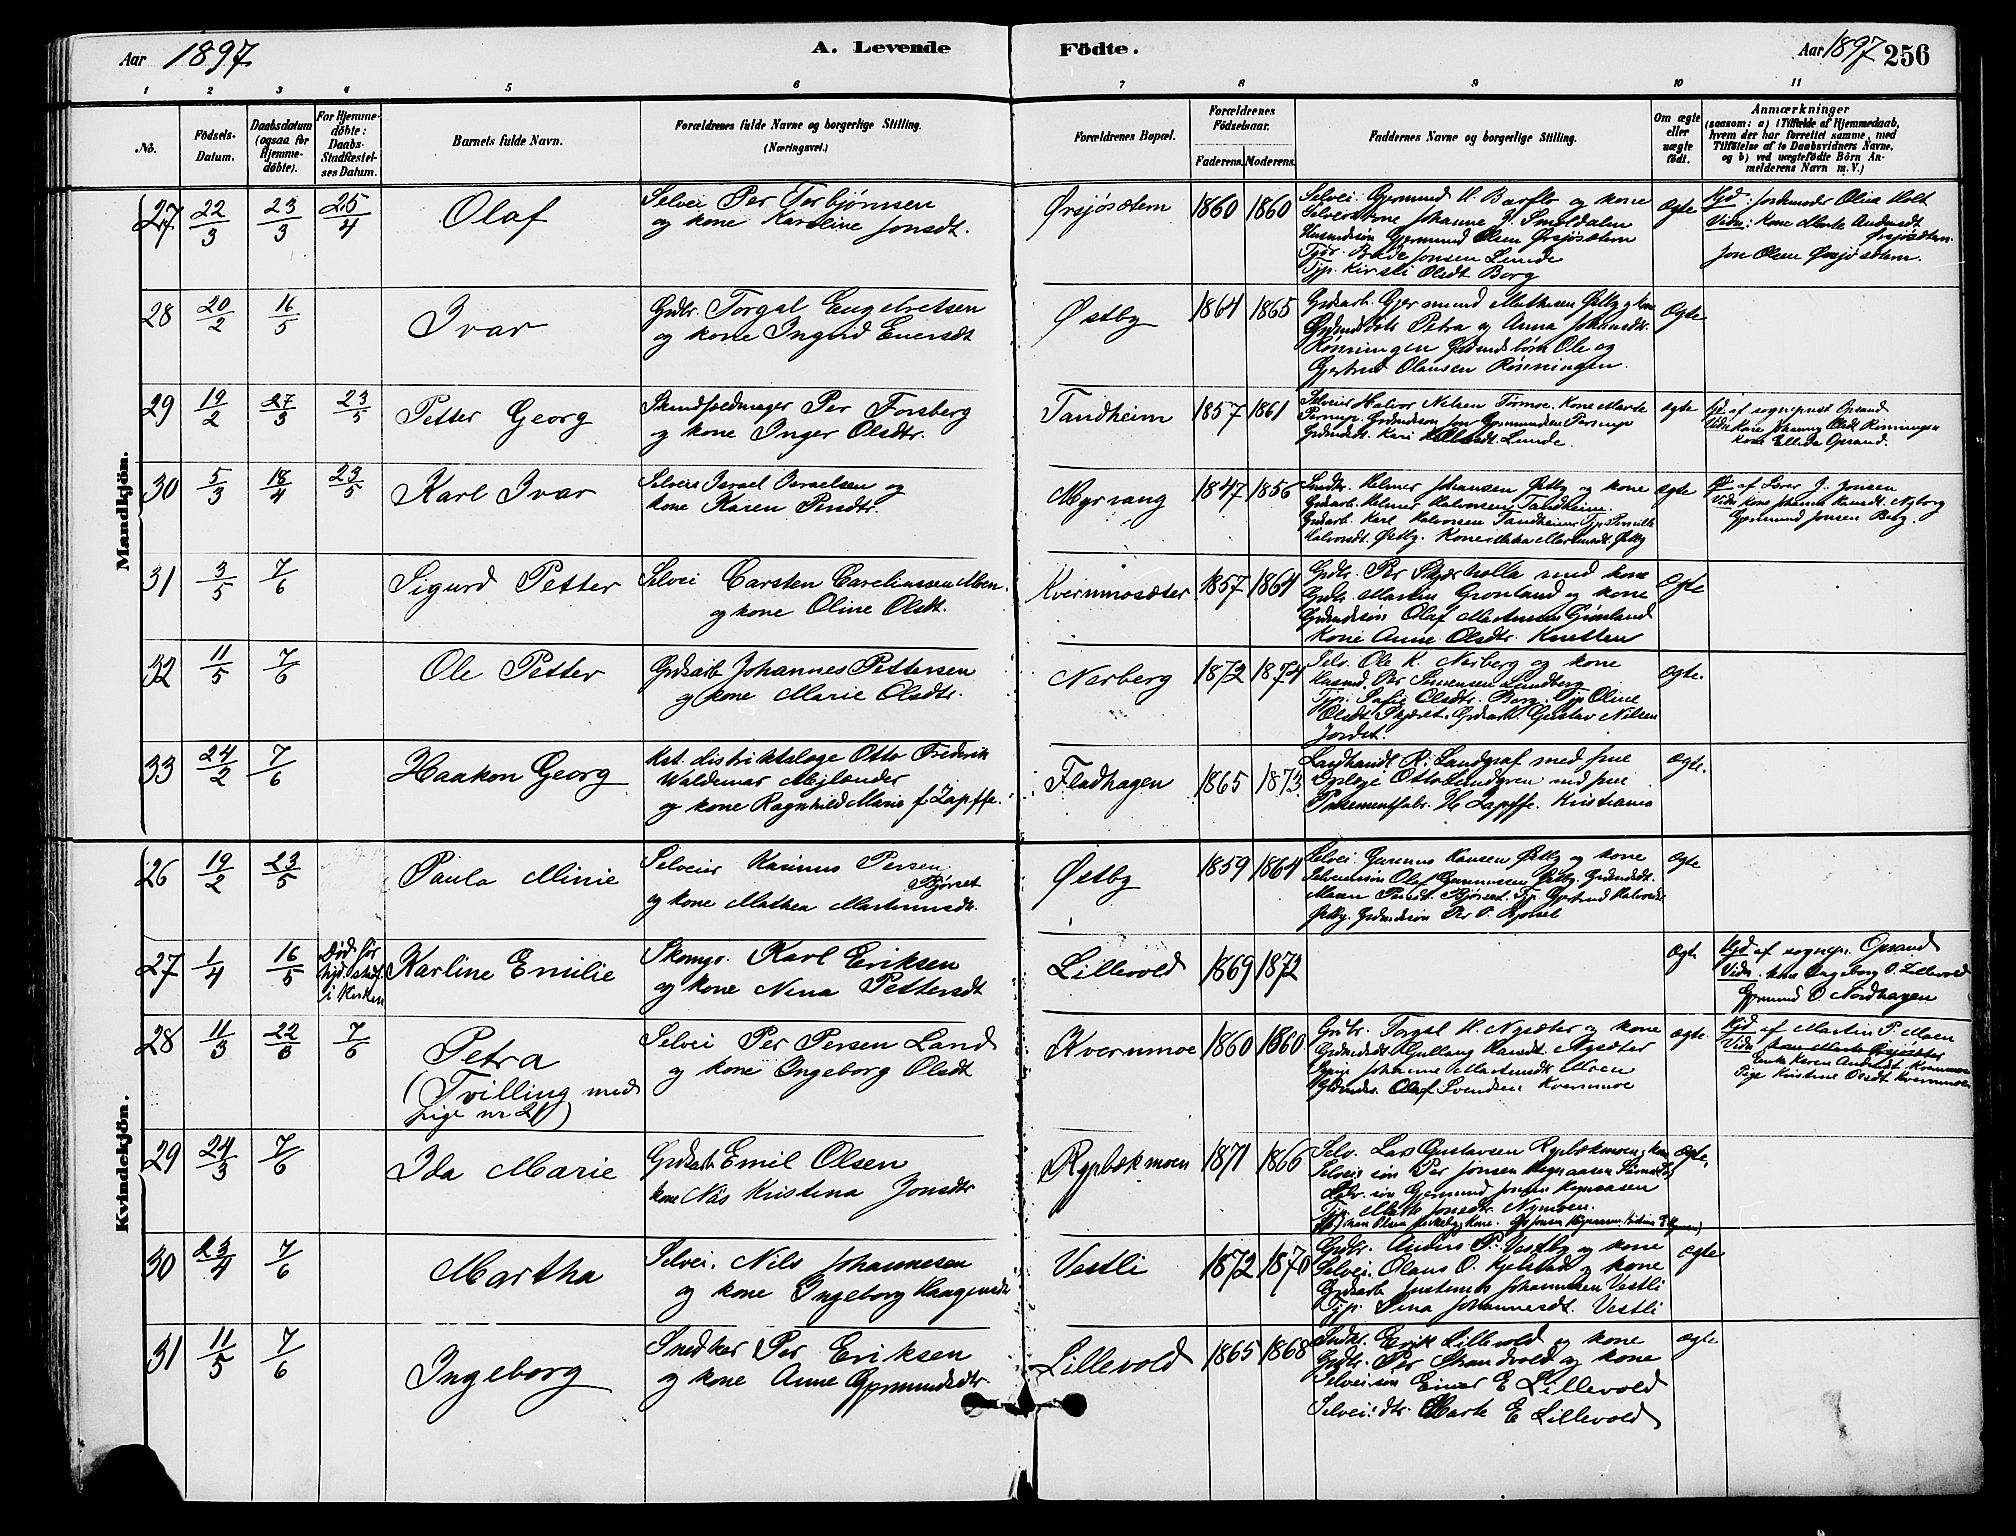 Aar 1897. A. Levende Födte. Aar 1897 256
1 2 3 4 5 6 7 8 9 10 11
No. Födsels-Datum. Daabsdatum (ogsaa for Hjemmedöbte). For Hjemmedöbte: Daabs-Stadfæstelses Datum. Barnets fulde Navn. Forældrenes fulde Navne og borgerlige Stilling. (Næringsvei.) Forældrenes Bopæl. Forældrenes Födselsaar. Faderens. Moderens. Faddernes Navne og borgerlige Stilling. Om ægte eller uægte födt. Anmærkninger (saasom: a) i Tilfælde af Hjemmedaab, hvem der har forrettet samme, med Tilföielse af to Daabsvidners Navne, og b) ved uægtefödte Börn Anmelderens Navn m. V.)
Mandkjön.
27 22/3 23/3 25/4 Olaf
Selvei Per Torbjønsen
og kone Karoline Jonsdt.
Ørsjøsætern 1860 1860
Selvei. Gjermund H. Barflo og kone
Selveierkone Johanne J. Smoldalen
Husmdsøn Gjermund Olsen Ørsjøsætern
Tjgr. Peder Jonsen Lunde
Tjp. Kirsti Olsdt Borg
ægte
Hjd. Jordmoder Olivia Holt
Vidn: Kone Marte Andersdt Ørsjøsætern
Jon Olsen Ørsjøsætern.
28 20/2 16/5 Ivar
Grdbr. Torgal Engebretsen
og kone Ingrid Enersdt
Østby 1864 1865
Grdsarb. Gjermund Mathisen Østby og kone
Grdmdsdøtr Petra og Anna Johansdtr.
Rønningen Grdmdsbørn Ole og
Gjertrud Olausen Rønningen.
ægte
29 19/2 27/3 23/5 Petter Georg
Skindfeldmager Per Forsberg
og kone Inger Olsdtr.
Tandheim 1857 1861
Selveier Halvor Nilsen Tørmoe. Kone Marte
Grdmdsdt. Kari Lunde.
ægte
Hjd af sogneprest Opsand
Vidn Kone Johanna Olsdt Rønningen
Kone Elleda Opsand.
30 5/3 18/4 23/5 Karl Ivar
Selveir Israel Israelsen og
kone Karen Persdtr.
Myrvang 1847 1856
Snedkr. Helmer Johansen Østby og kone
Grdsarb. Helmer Halvorsen Tandheim.
Grdsarb. Karl Halvorsen Tandheim Tjp. Pernille
Halvorsdt. Østby. Kone Martinusdt Østby
ægte
Hjd. af Lærer J. Jonsen
Vidn Kone Johanne Hansdt. Nyborg
Gjermund Jonsen Berg.
31 3/5 7/6 Sigurd Petter
Selvei Carsten Careliussen Moen.
og kone Oline Olsdt.
Kvernmosæter 1857 1864
Grdbr. Per Skjærholla med kone
Grdbr. Martin Grønland og kone
Grdmdssøn Olaf Martinsen Grønland
Kone Anne Olsdtr. Knetten
ægte
32 11/5 7/6 Ole Petter
Grdsarb Johannes Pettersen
og kone Marie Olsdtr.
Nerberg 1872 1874
Selv. Ole K. Nerberg og kone
Husmd. Per Simensen Lundberg
Tjp. Sofie Olsdtr. Borg. Tjp Oline
Olsdt Skjæret. Grdsarb. Gustav Nilsen
Jordet.
ægte.
33 24/2 7/6 Haakon Georg
Kst. distriktslæge Otto Frederik
Waldemar Mejlænder
og kone Ragnhild Marie f. Zapffe.
Fladhagen 1865 1873
Landhandl. R. Landgraf med frue
Otto Lundgren med frue
H. Zapffe. Kristiania
ægte.
Kvindekjön.
26 19/2 23/5 Paula Minie
Selveier Rasmus Persen
Bjørset
og kone Mathea Martinusdt.
Østby 1859 1864
Selvei. Hansen Østby og kone
Selveiersøn Olaf Østby. Grdmdsdt.
Maren Persdt. Bjørset. Tjp Gjertrud Halvorsdt.
Østby. Grdmdssøn Per P. Bjørset
ægte
27 1/4 16/5 Død før hjd. stadf. i Kirken Karline Emilie
Skomgr. Karl Eriksen
og kone Nina Pettersdt
Lillevold 1869 1872
ægte
Hjd af sognepr. Opsand
Vidn. kone Ingeborg O. Lillevold
Gjermund O. Nordhagen
28 11/3 22/3 7/6 Petra
(Tvilling med
Lige nr 21)
Selvei Per Persen Land
og kone Ingeborg Olsdt
Kvernmoe 1860 1860
Grdbr. Torgal H. Nysæter og kone
Grdmdsdt Gullaug Hansdt. Nysæter
Pige Johanne Martinsdt Moen
Olaf Svendsen Kvernmoe
ægte.
Hjd af Martin P. Moen
Vidn
Enke Karen Andersdt Kvernmoe
Pige Kristine Olsdt Kvernmoe
29 24/3 7/6 Ida Marie
Grdsarb Emil Olsen
kone Nils Kristina Jonsdtr
Rypbækmoen 1871 1866
Selv. Lars Gustavsen Rypbækmoen og kone
Selveir søn Per Jonsen
søn Gjermund Jonsen
Tjp. Marte Jonsdtr. Nymoen.
ægte.
30 23/4 7/6 Martha
Selvei. Nils Johannesen
og kone Ingeborg Haagensdt
Vestli 1872 1870
Grdbr. Anders P. Vestby og kone
Selvei. Olaus O. Kjølstad og kone
Grdsarb Justinus Johannesen Vestli
Tjp. Lina Johannesdt. Vestli
ægte
31 11/5 7/6 Ingeborg
Snedker Per Eriksen
og kone Anne Gjermundsdtr.
Lillevold 1865 1868
Snedkr. Erik Lillevold og kone
Grdbr. Per Strandvold og kone
Selvei søn Einar E Lillevold
Selvei. dtr. Marte E Lillevold
ægte